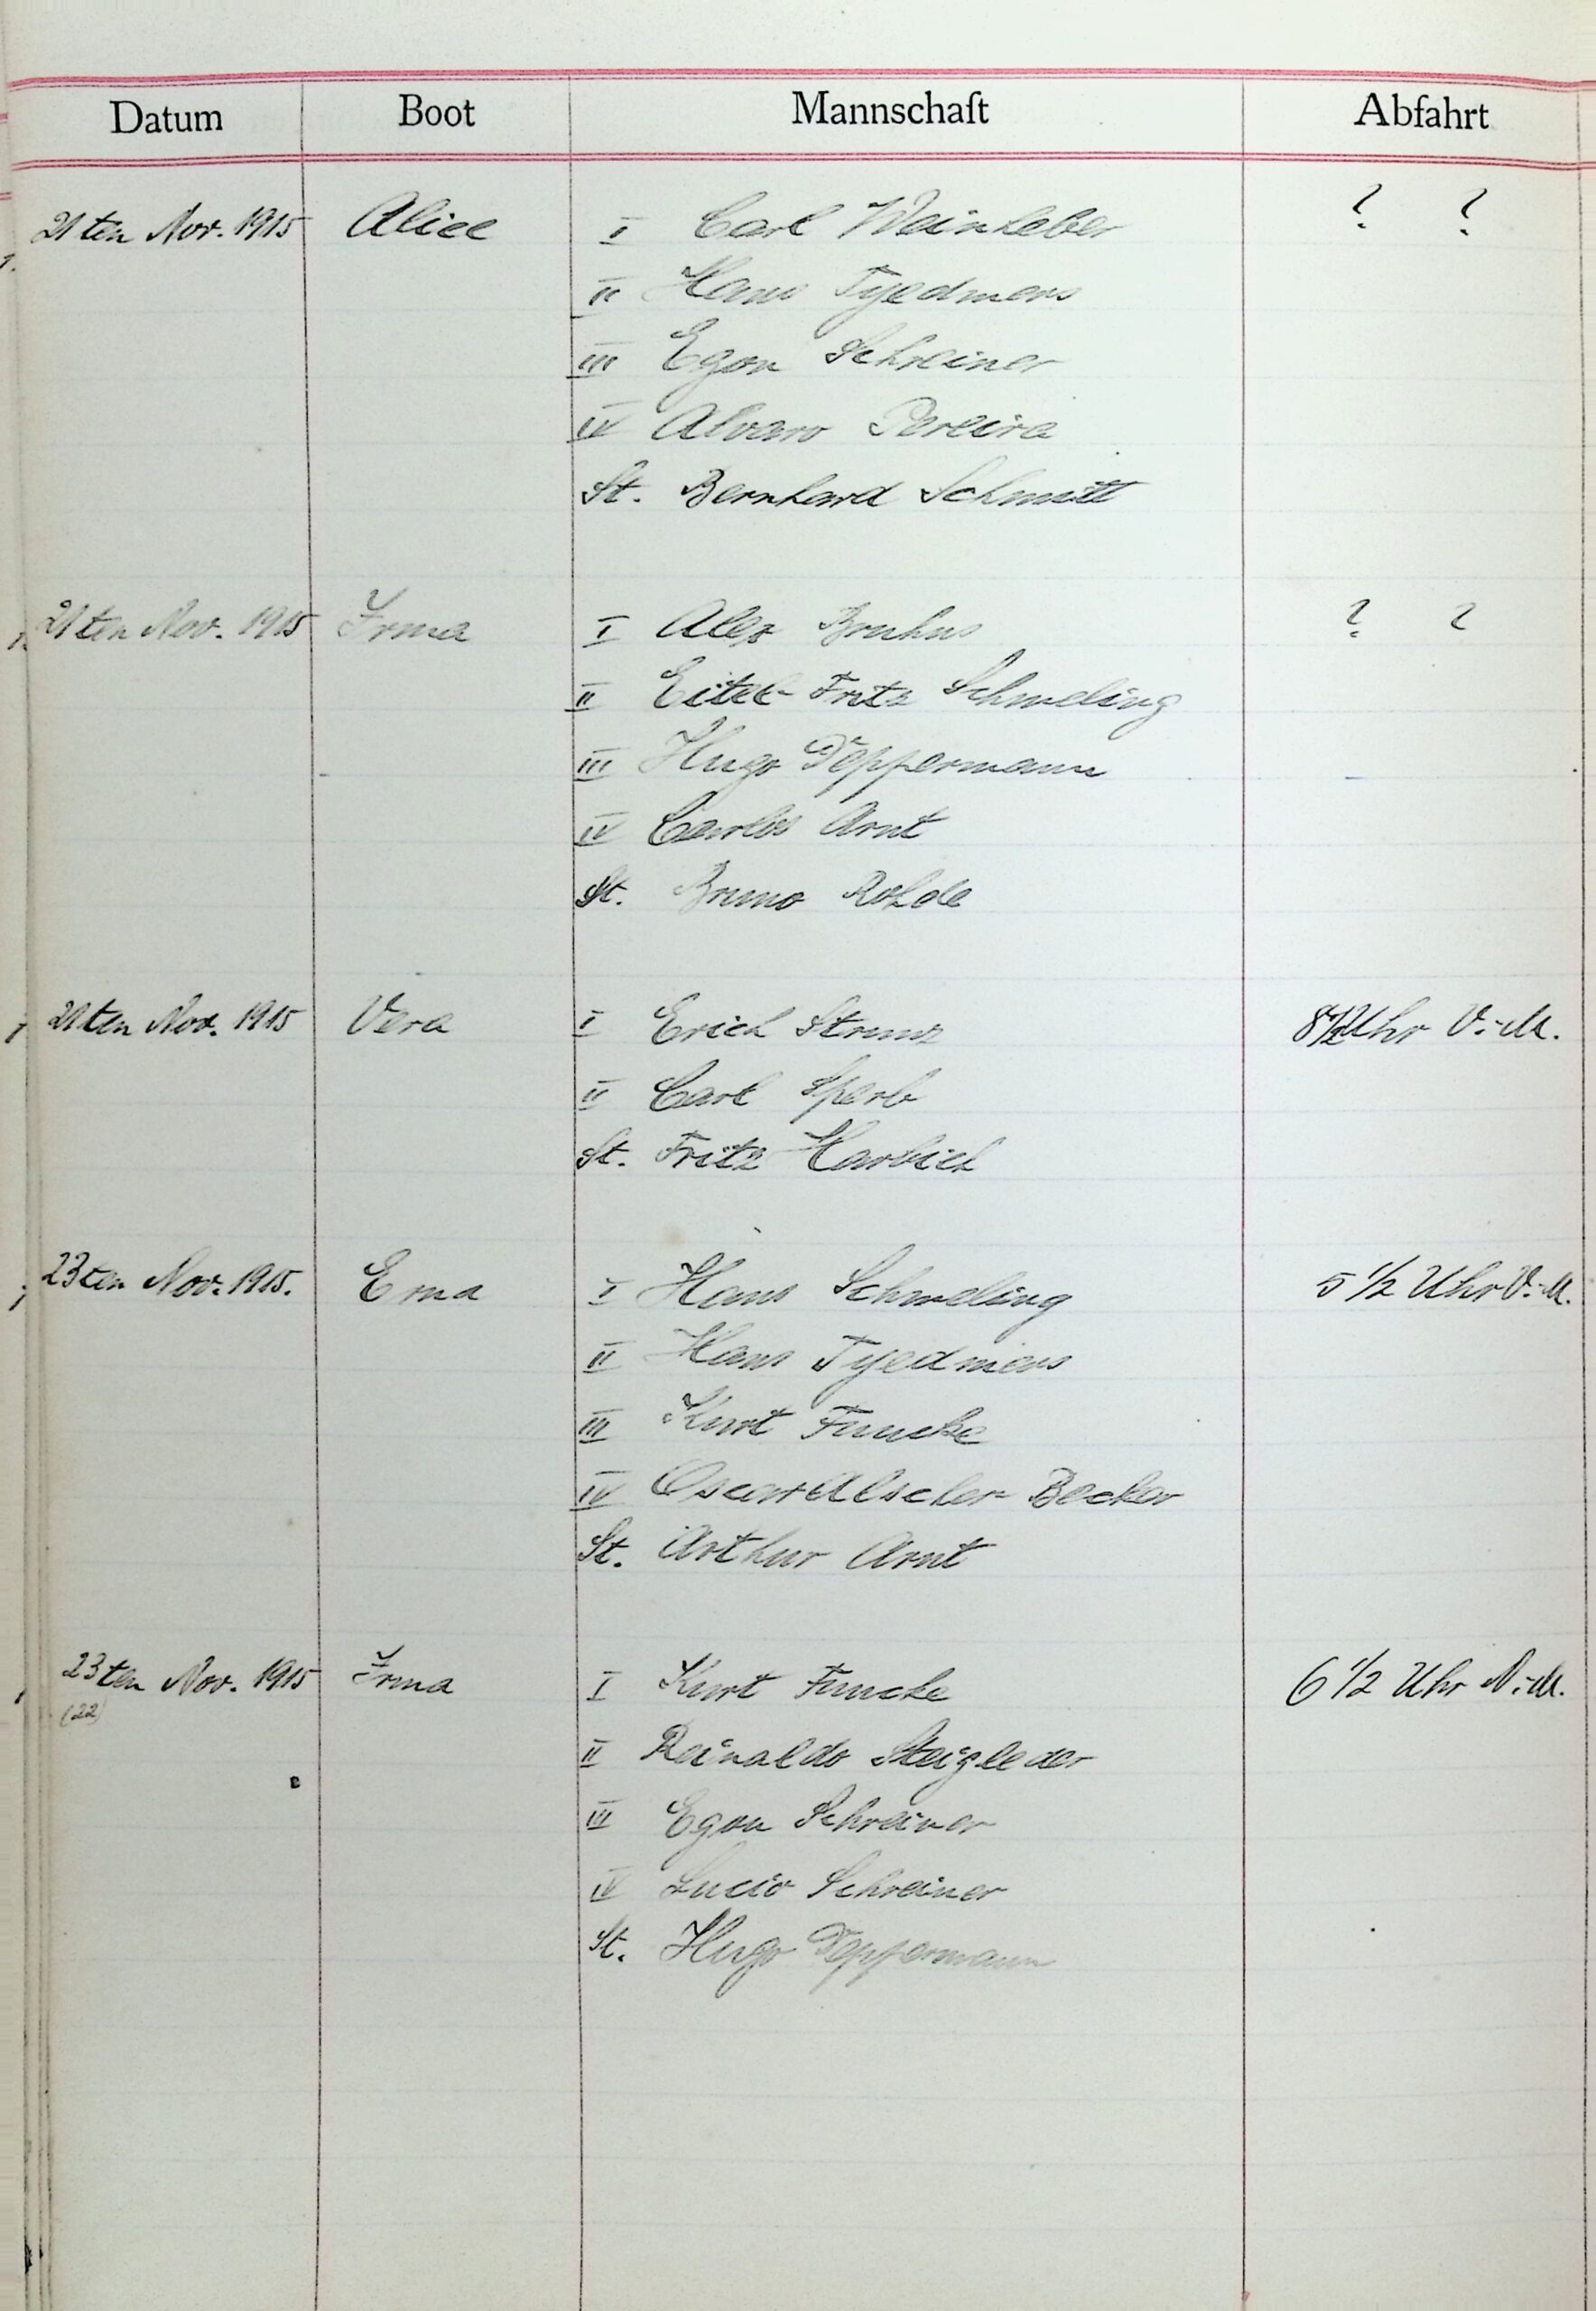 Datum Boot Mannschaft Abfahrt
21ten Nov. 1915 Alice I Carl Weinleber ? ?
II Hans Tyedmers
III Egon Schreiner
IV Alvaro Pereira
St. Bernhard Schmitt
21ten Nov. 1915 Irma I Alex Bruhns ? ?
II Eitel-Fritz Schmeling
III Hugo Teppermann
IV Carlos Arnt
St. Bruno Rohde
21ten Nov. 1915 Vera I Erich Strunz 8 1/2 Uhr V.-M.
II Carl Sperb
St. Fritz Harbich
23ten Nov. 1915. Ema I Hans Schmeling 5 1/2 Uhr V.-M.
II Hans Tyedmers
III Kurt Funcke
IV Oscar Becker
St. Arthur Arnt
23ten Nov. 1915 Irma I Kurt Funcke 6 1/2 Uhr N.-M.
(22)
II Reinaldo Steigleder
III Egon Schreiner
IV Lucio Schreiner
St. Hugo Teppermann